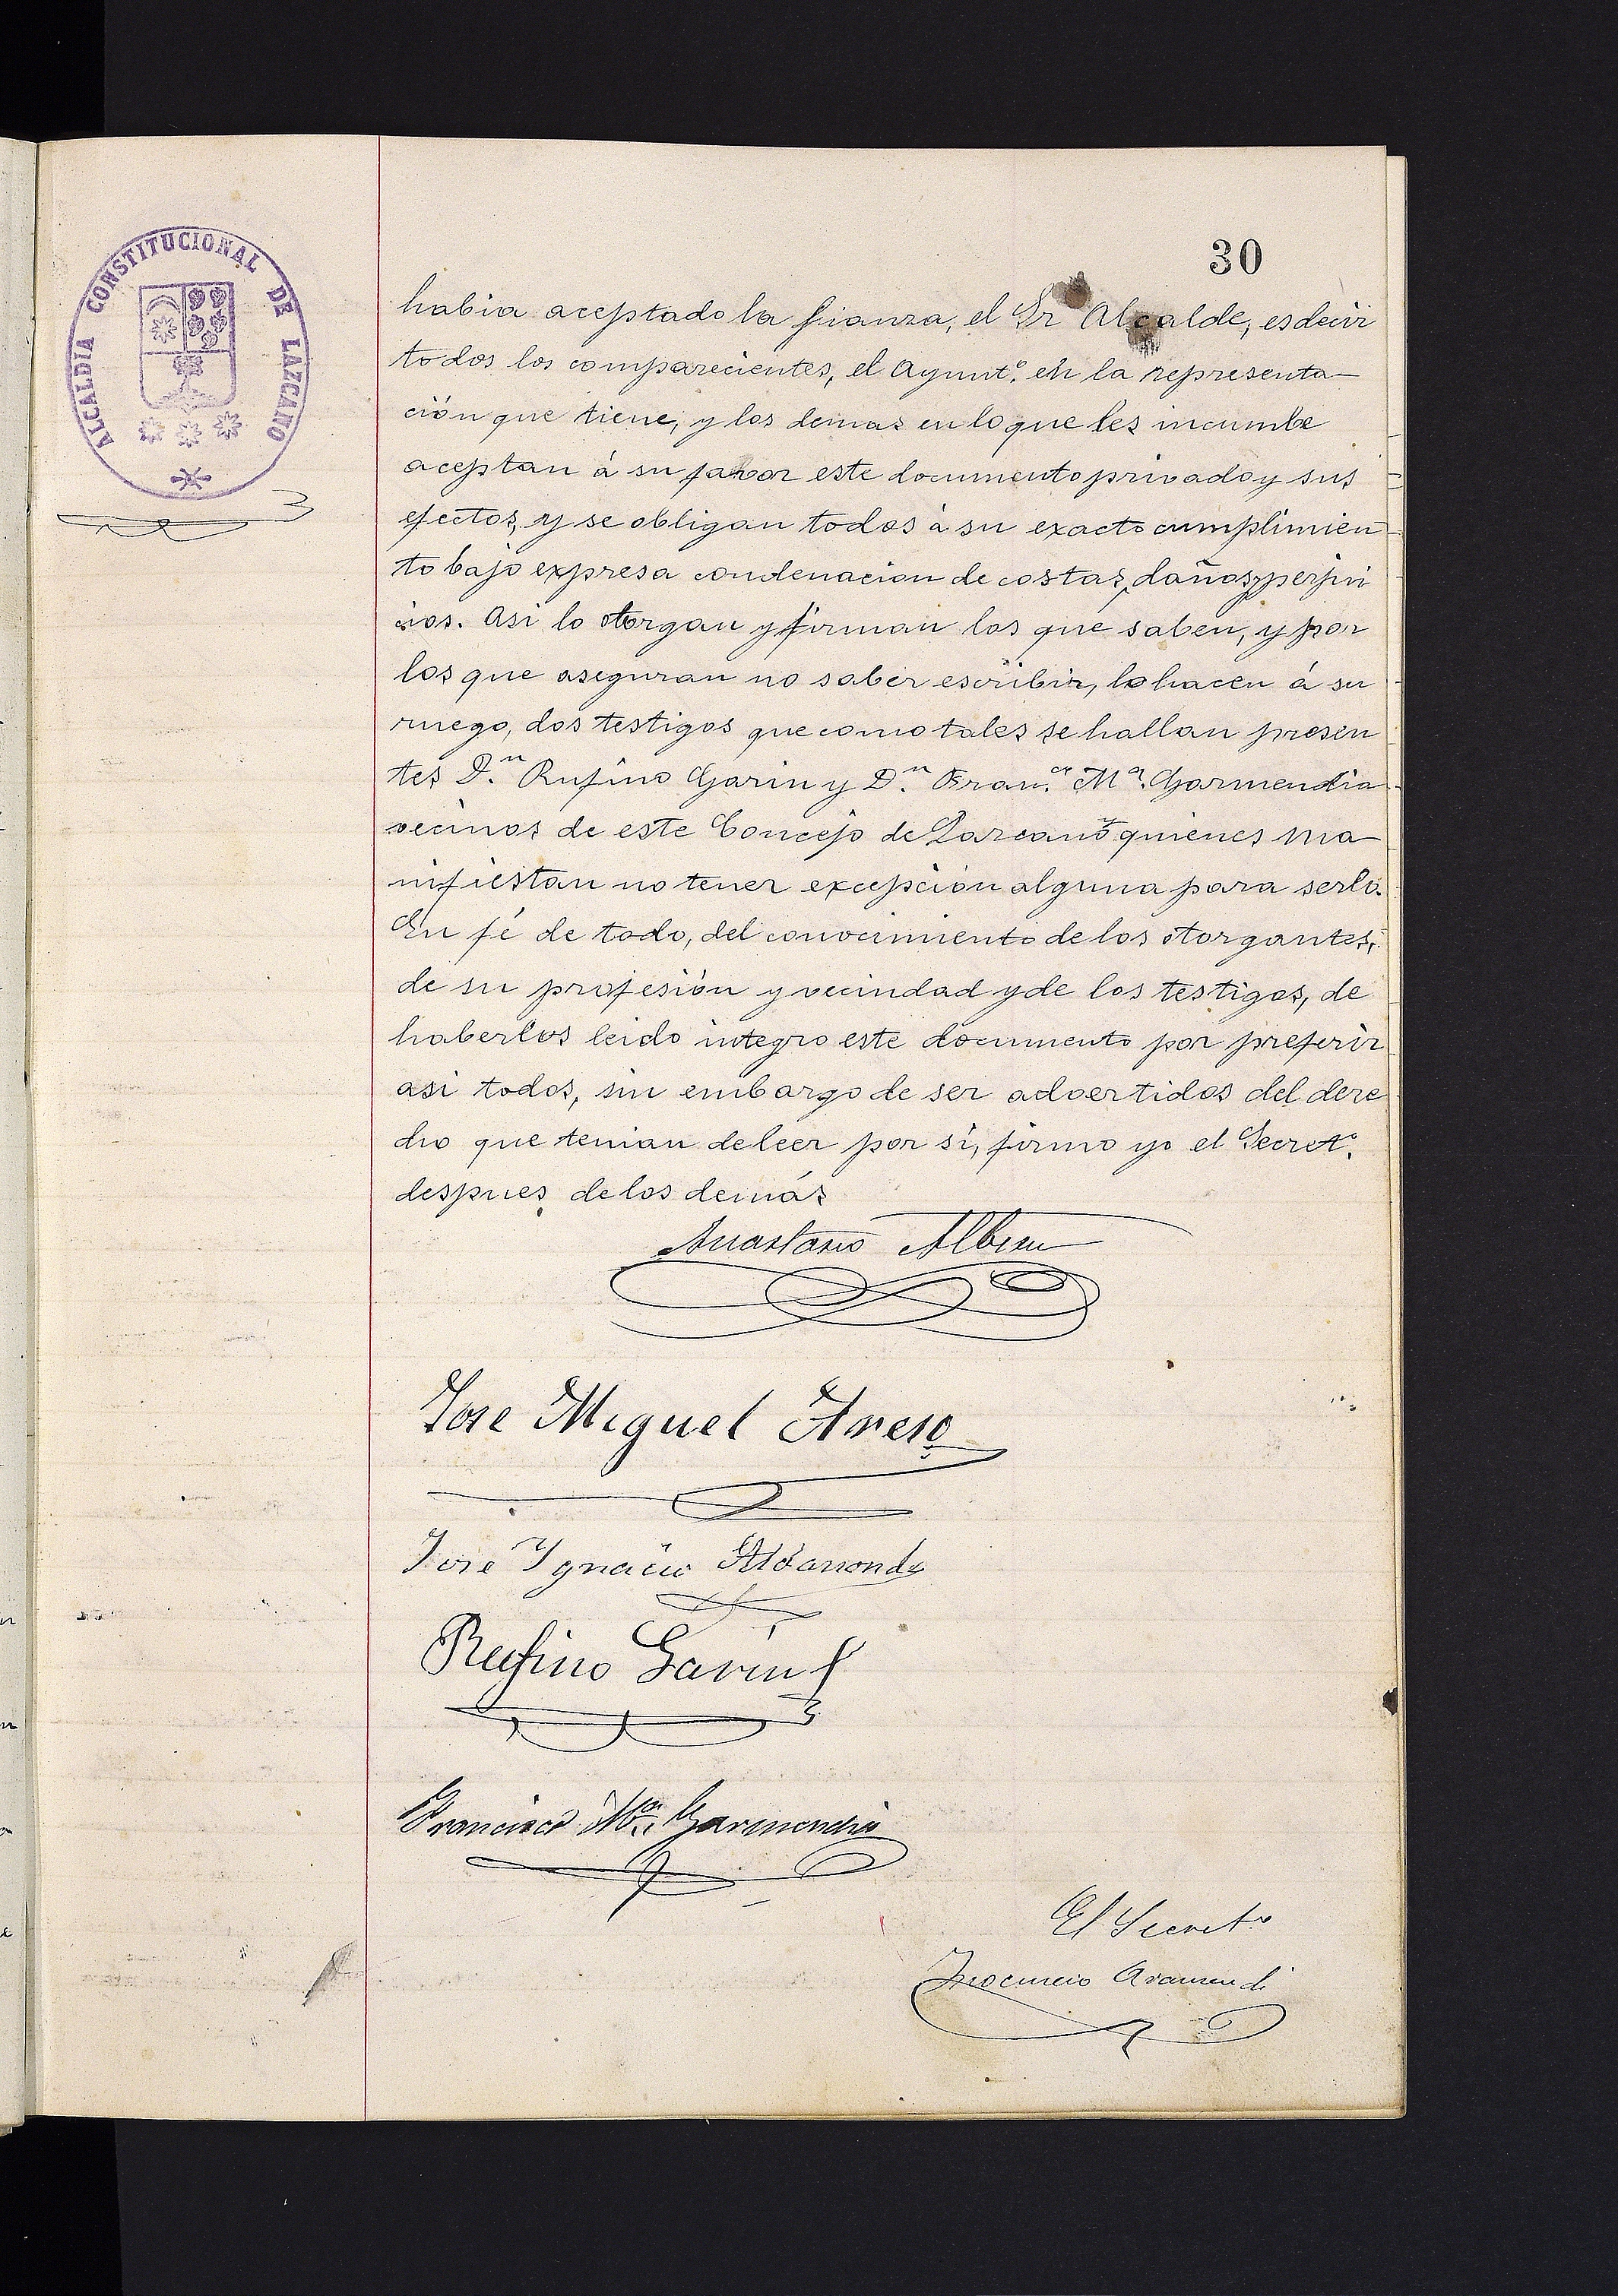 ALCALDIA CONSTITUCIONAL DE LAZCANO
30
habia aceptado la fianza, el Sr Alcalde, es decir
todos los comparecientes, el Ayunt.º en la representa-
ción que tiene, y los demas en lo que les incumbe
aceptan á su favor este documento privado y sus
efectos, y se obligan todos á su exacto cumplimien
to bajo expresa condenacion de costas, daños y perjui
cios. Asi lo otorgan y firman los que saben, y por
los que aseguran no saber escribir, lo hacen á su
ruego, dos testigos que como tales se hallan presen
tes D.n Rufino Garin y D.n Fran.co M.a Garmendia
vecinos de este Concejo de Lazcano quienes ma-
nifiestan no tener excepción alguna para serlo.
En fé de todo, del conocimiento de los otorgantes,
de su profesión y vecindad y de los testigos, de
haberlos leido integro este documento por preferir
asi todos, sin embargo de ser advertidos del dere
cho que tenian de leer por si, firmo yo el Secret.º
despues de los demás
Anastasio Albisu
Jose Miguel Areso
Jose Ignacio Aldasoro
Rufino Garin
Francisco M.a Garmendia
El Secret.o
Inocencio Aramendi